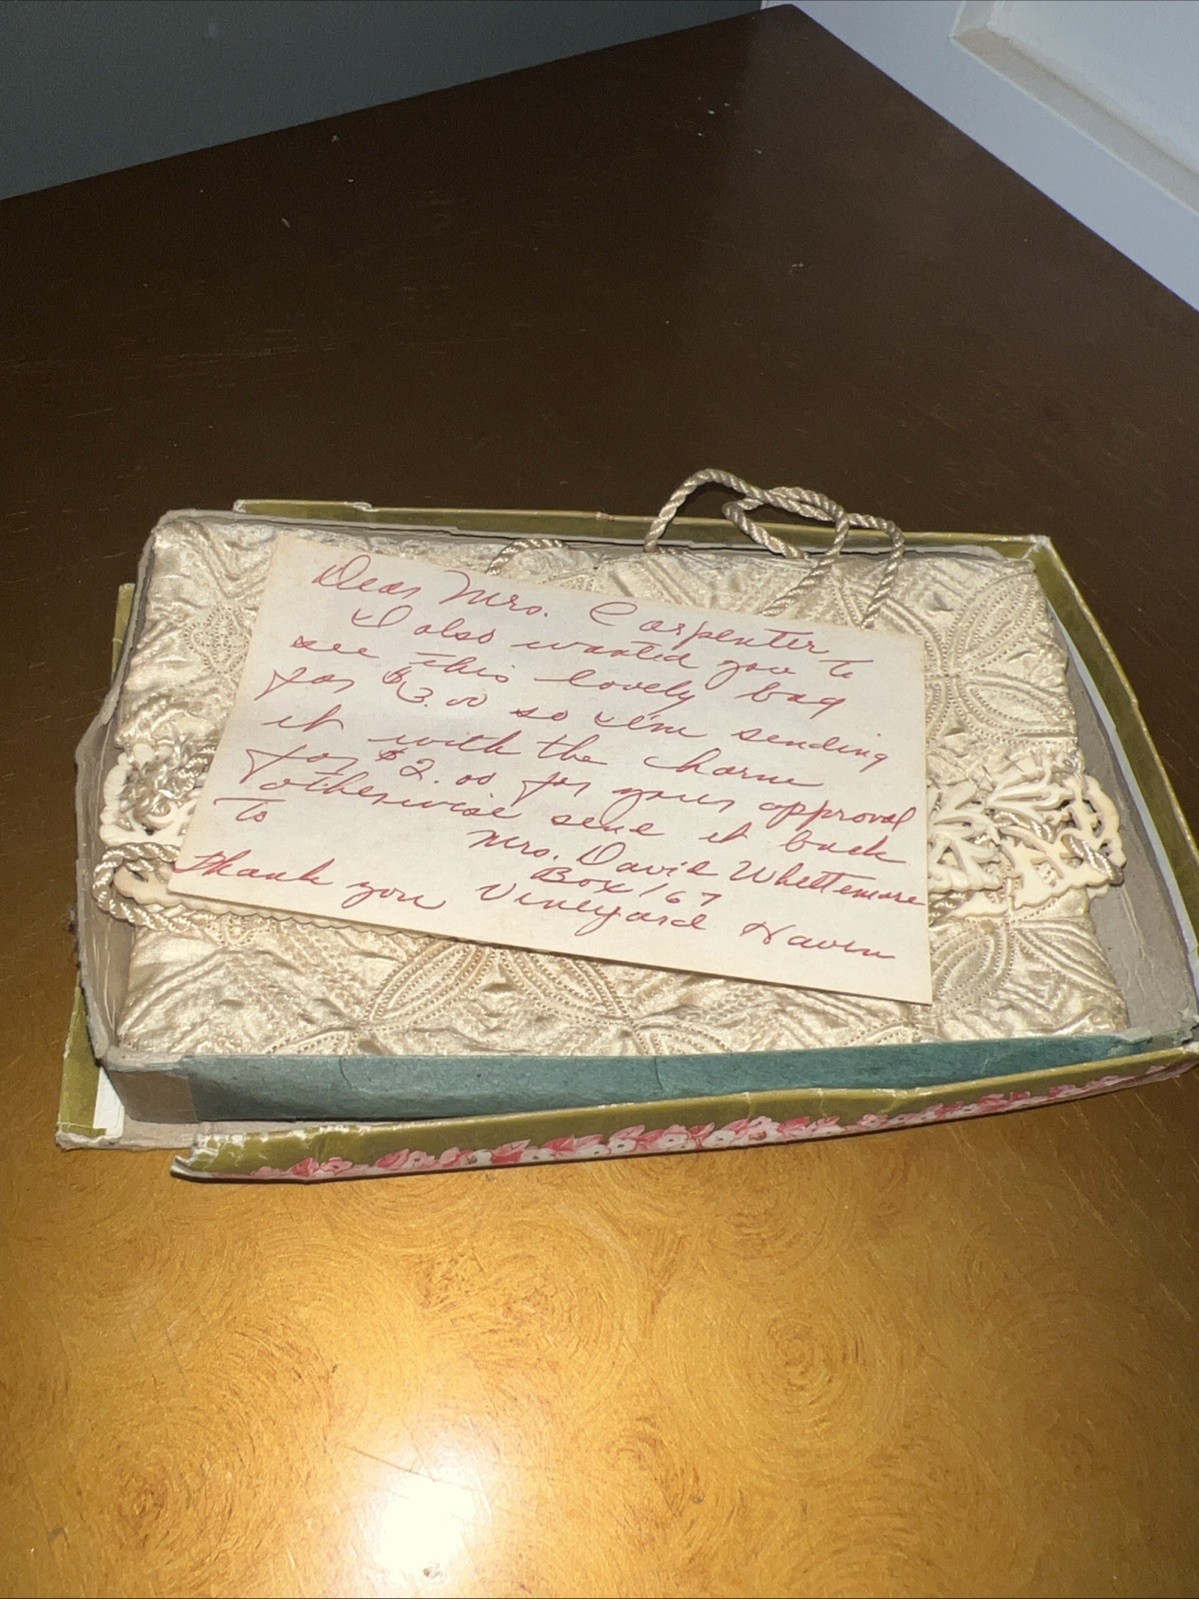 Dear Mrs. Carpenter
I also wanted you to
see this lovely bag
for $3.00 so I'm sending
it with the charm
for $2.00 for your approval
otherwise send it back
To Mrs. David Whittemore
Box 167
Thank you Vineyard Haven